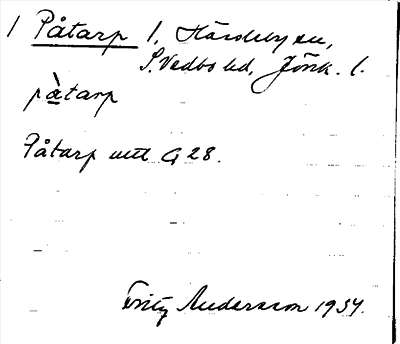 1 Påtarp 1, Hårdeby sn,
S. Vedbo hd, Jönk. l.
pàtarp
Påtarp utt. G 28.
Fritz Andersson 1934.